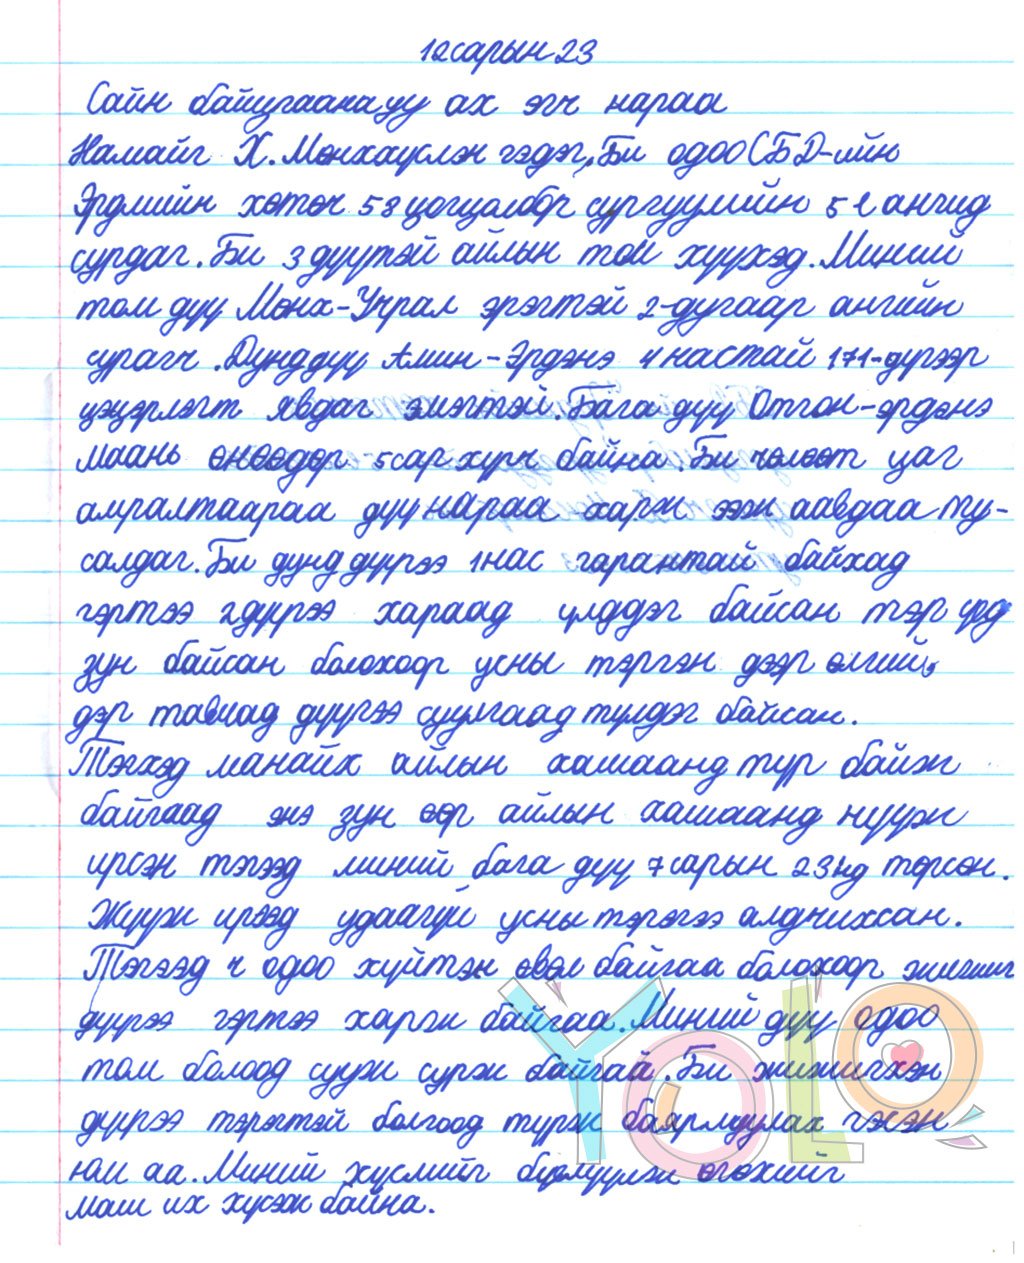 12 сарын 23
Сайн байцгаанауу ах эгч нараа
Намайг Х. Мөнхжүслэн гэдэг, Би одоо СБД-ийн
Эрдмийн хөтөч 58 цогцолбор сургуулийн 5е ангид
сурдаг. Би 3 дүүтэй айлын том хүүхэд. Миний
том дүү Мөнх-Учрал эрэгтэй 2-дугаар ангийн
сурагч. Дунд дүү Амин-Эрдэнэ 4 настай 171-дүгээр
цэцэрлэгт явдаг эмэгтэй. Бага дүү Отгон-эрдэнэ
маань өнөөдөр 5 сар хүрч байна. Би чөлөөт цаг
амралтаараа дүү нараа харж ээж аавдаа ту-
салдаг. Би дунд дүүгээ 1 нас гарантай байхад
гэртээ 2 дүүгээ хараад үлддэг байсан тэр үед
зун байсан болохоор усны тэргэн дээр өлгий,
дэр тавиад дүүгээ суулгаад түлдэг байсан.
Тэгхэд манайх айлын хашаанд түр байж
байгаад энэ зун өөр айлын хашаанд нүүж
ирсэн тэгээд миний бага дүү 7 сарын 23нд төрсөн.
Жүүж ирээд удаагүй усны тэргээ алдчихсан.
Тэгээд ч одоо хүйтэн өвөл байгаа болохоор жижиг
дүүгээ гэртээ харж байгаа. Миний дүү одоо
том болоод сууж сурж байгай. Би жижигхэн
дүүгээ тэрэгтэй болгоод түрж баярлуулах гэсэн
юм аа. Миний хүслийг биелүүлж өгөхийг
маш их хүсэж байна.
YOLO